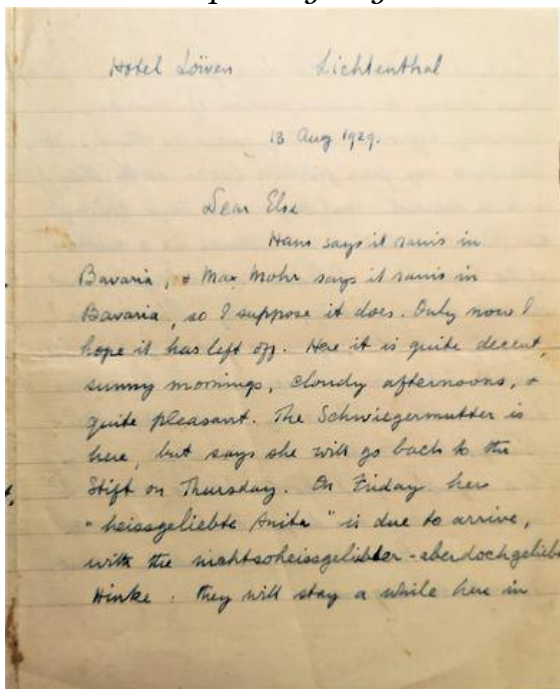 Hotel Löwen Lichtenthal
13 Aug 1929.
Dear Else
Hans says it rains in
Bavaria, + Max Mohr says it rains in
Bavaria, so I suppose it does. Only now I
hope it has left off. Here it is quite decent,
sunny mornings, cloudy afternoons, +
quite pleasant. The Schwiegermutter is
here, but says she will go back to the
Stift on Thursday. On Friday her
"heissgeliebte Anita" is due to arrive,
with the nichtsoheissgeliebter-aberdochgeliebt
Hinke. They will stay a while here in